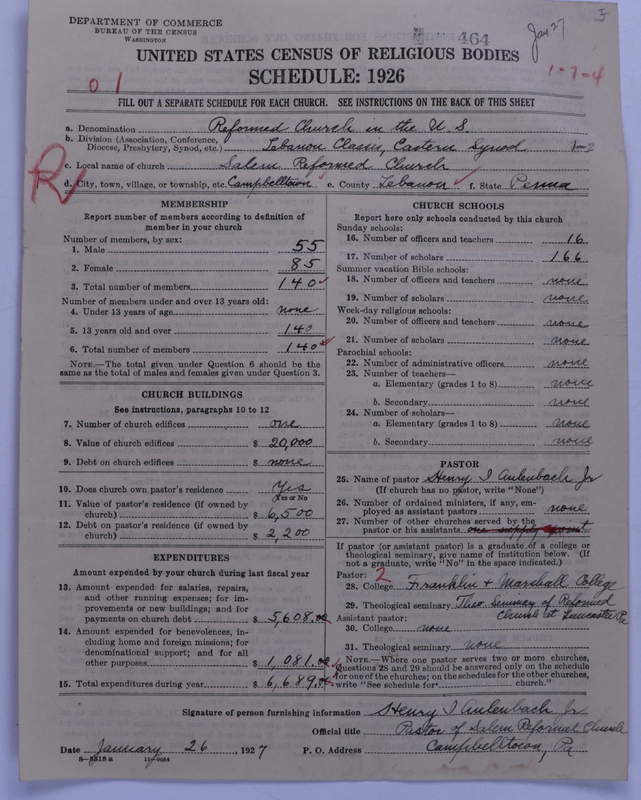 DEPARTMENT OF COMMERCE
BUREAU OF THE CENSUS
WASHINGTON
464
Jan 27
UNITED STATES CENSUS OF RELIGIOUS BODIES
SCHEDULE: 1926
0 1
1-7-4
FILL OUT A SEPARATE SCHEDULE FOR EACH CHURCH. SEE INSTRUCTIONS ON THE BACK OF THIS SHEET
a. Denomination Reformed Church in the U. S.
b. Division (Association, Conference, Diocese, Presbytery, Synod, etc.) Lebanon Classis, Eastern Synod 1-2
c. Local name of church Salem Reformed Church
d. City, town, village, or township, etc. Campbelltown e. County Lebanon f. State Penna
R
MEMBERSHIP
Report number of members according to definition of
member in your church
Number of members, by sex:
1. Male 55
2. Female 85
3. Total number of members 140
Number of members under and over 13 years old:
4. Under 13 years of age none
5. 13 years old and over 140
6. Total number of members 140
NOTE.—The total given under Question 6 should be the
same as the total of males and females given under Question 3.
CHURCH BUILDINGS
See instructions, paragraphs 10 to 12
7. Number of church edifices one
8. Value of church edifices $ 20,000
9. Debt on church edifices $ none
10. Does church own pastor's residence Yes
Yes or No
11. Value of pastor's residence (if owned by
church) $ 6,500
12. Debt on pastor's residence (if owned by
church) $ 2,200
EXPENDITURES
Amount expended by your church during last fiscal year
13. Amount expended for salaries, repairs,
and other running expenses; for im-
provements or new buildings; and for
payments on church debt $ 5,608.00
14. Amount expended for benevolences, in-
cluding home and foreign missions; for
denominational support; and for all
other purposes $ 1,081.00
15. Total expenditures during year $ 6,689.00
CHURCH SCHOOLS
Report here only schools conducted by this church
Sunday schools:
16. Number of officers and teachers 16
17. Number of scholars 166
Summer vacation Bible schools:
18. Number of officers and teachers none
19. Number of scholars none
Week-day religious schools:
20. Number of officers and teachers none
21. Number of scholars none
Parochial schools:
22. Number of administrative officers none
23. Number of teachers—
a. Elementary (grades 1 to 8) none
b. Secondary none
24. Number of scholars—
a. Elementary (grades 1 to 8) none
b. Secondary none
PASTOR
25. Name of pastor Henry I Aulenbach Jr
(If church has no pastor, write "None")
26. Number of ordained ministers, if any, em-
ployed as assistant pastors none
27. Number of other churches served by the
pastor or his assistants. one supply
If pastor (or assistant pastor) is a graduate of a college or
theological seminary, give name of institution below. (If
not a graduate, write "No" in the space indicated.)
Pastor: 2
28. College Franklin & Marshall College
29. Theological seminary Theo. Seminary of Reformed
Church at Lancaster Pa
Assistant pastor:
30. College none
31. Theological seminary none
NOTE.—Where one pastor serves two or more churches,
Questions 28 and 29 should be answered only on the schedule
for one of the churches; on the schedules for the other churches,
write "See schedule for church."
Signature of person furnishing information Henry I Aulenbach Jr.
Official title Pastor of Salem Reformed Church
Date January 26, 1927 P. O. Address Campbelltown, Pa
8—5515 a 11—9084